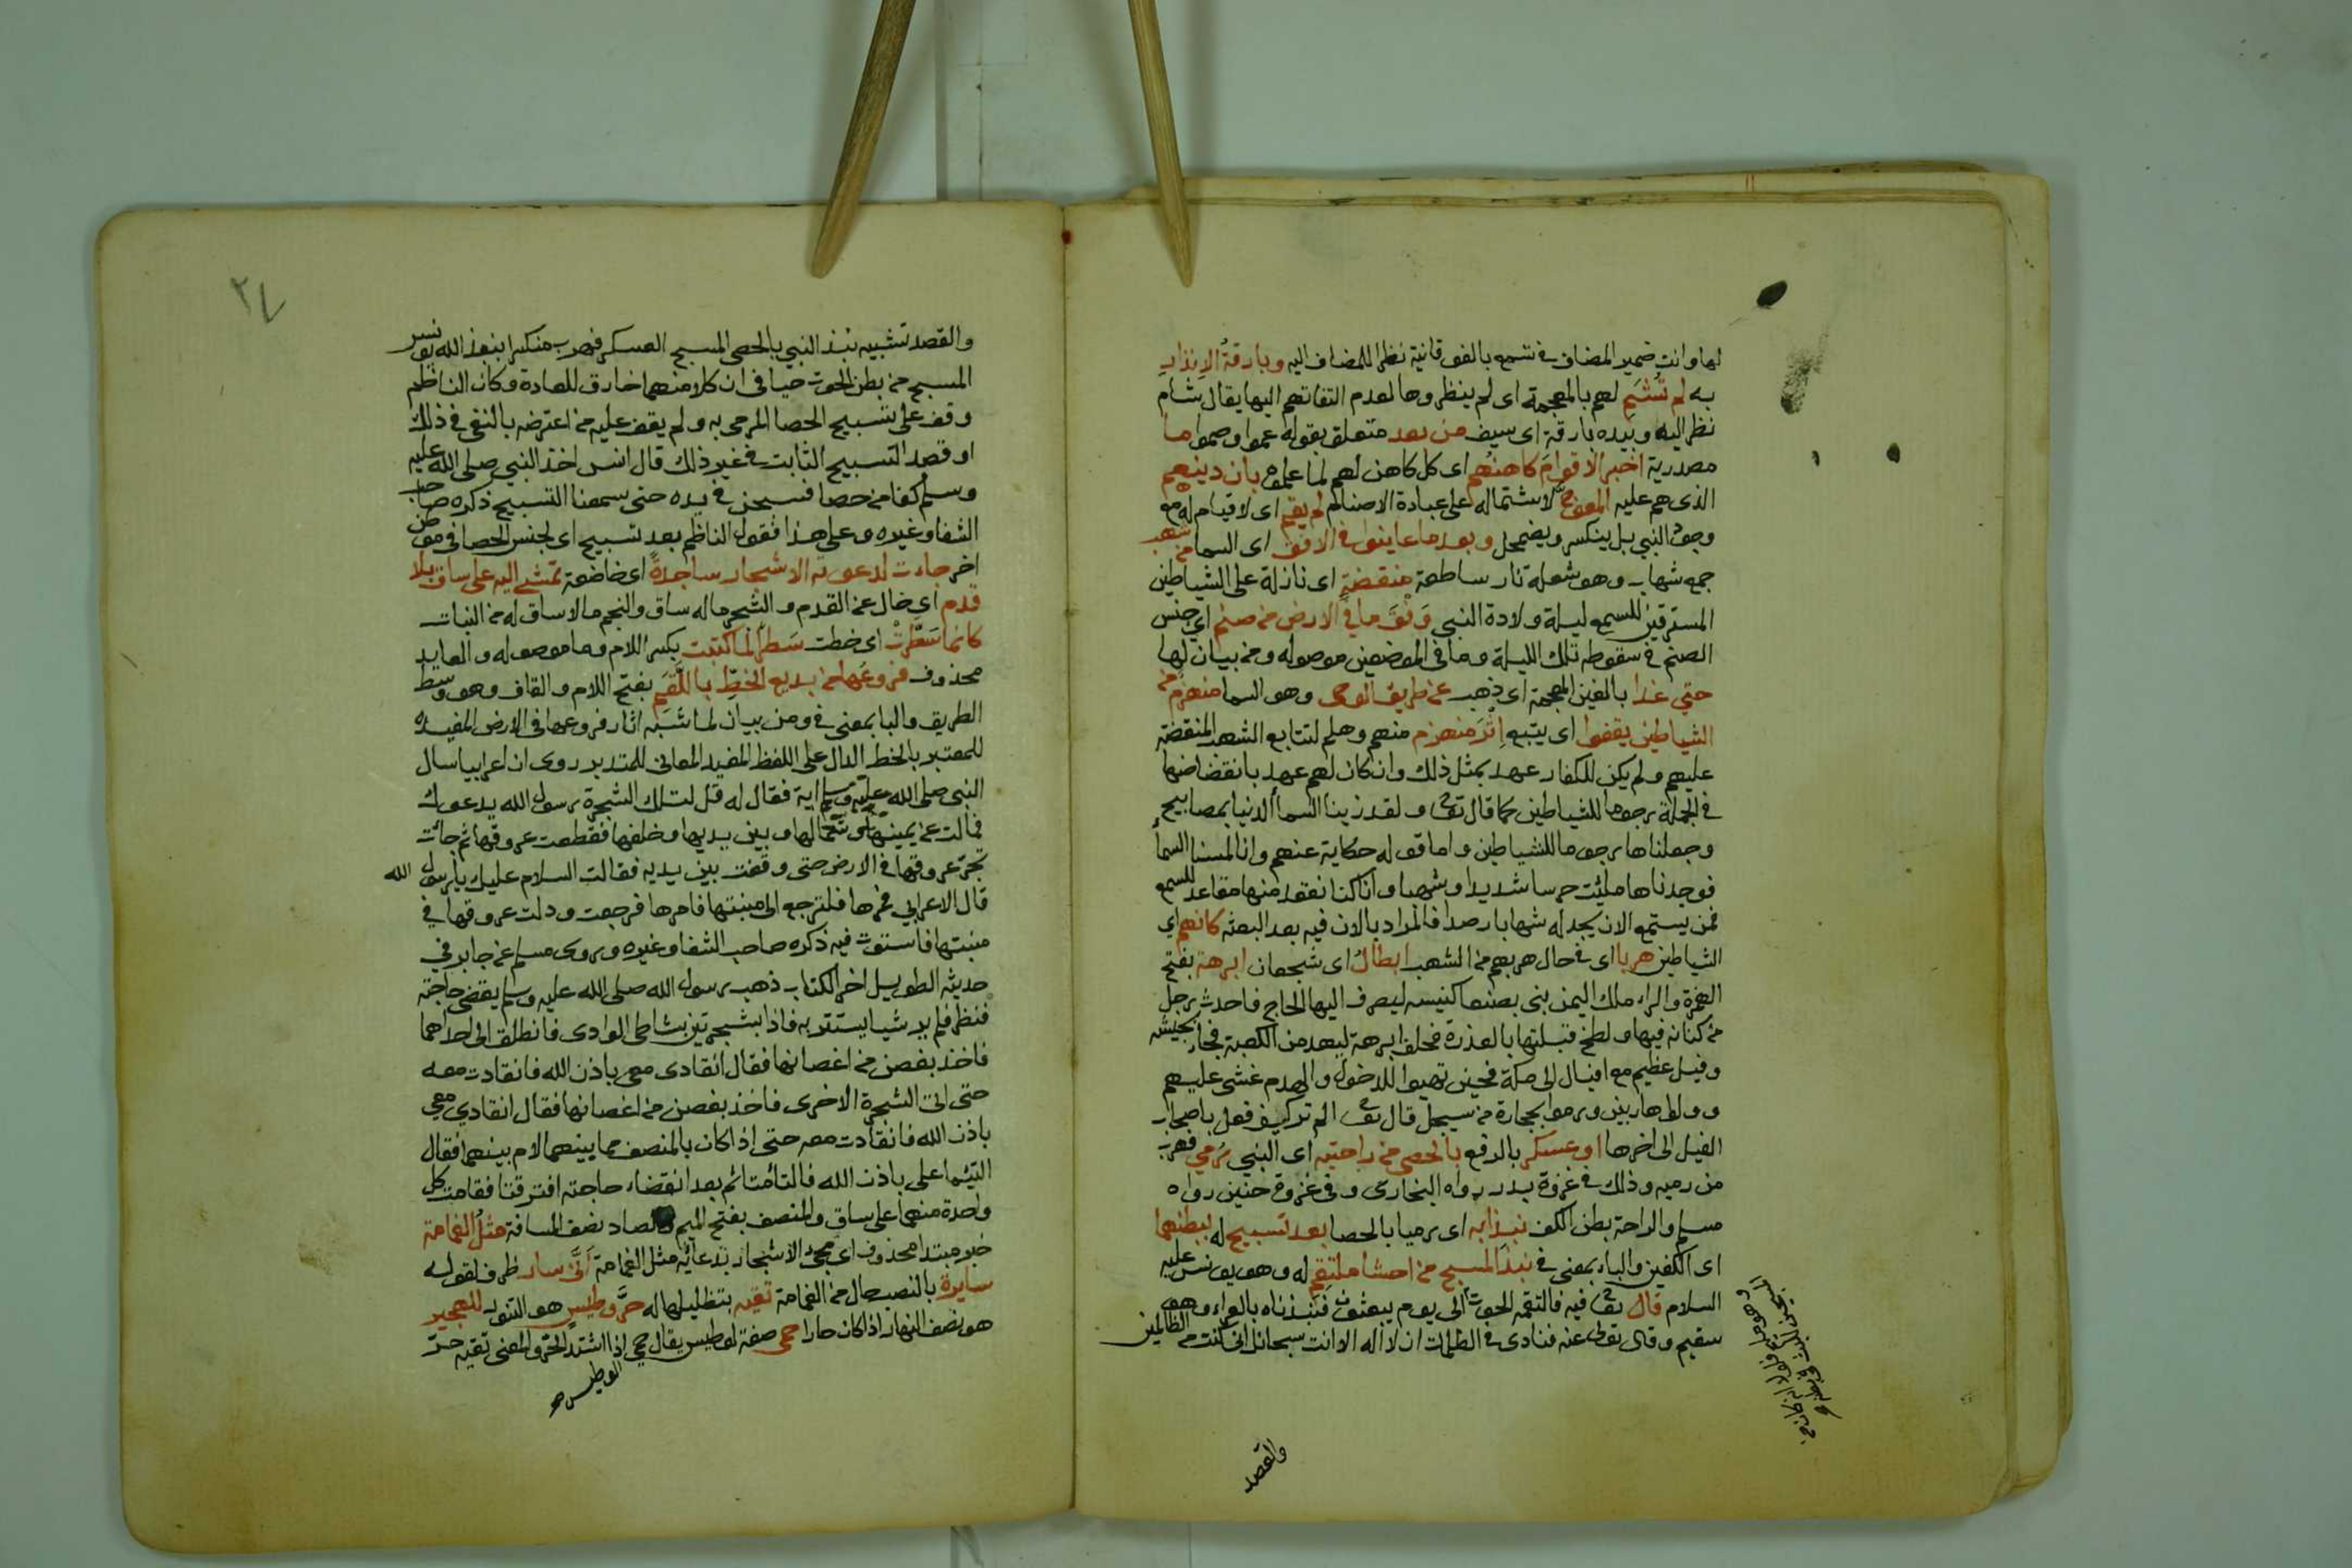 لها وانت ضمير المضاف في تسمع بالفوقانية نظرا للمضاف اليه وبارقة الانذار
به لم تُشَم لهم بالمعجمة اى لم ينظروها لعدم التفاتهم اليها يقال شام
نظر اليه وبيده بارقة اى سيف من بعد متعلق بقوله عموا وصموا ما
مصدرية اخبر الاقوامَ كاهنُهم اى كل كاهن لهم لما علموه بان دينهم
الذى هم عليه المعوجَّ لاشتماله على عبادة الاصنام لم يقم اى لا قيام له مع
وجود النبي بل ينكسر ويضمحل وبعد ما عاينوا في الافق اى السما من شهب
جمع شهاب وهو شعلة نار ساطعة منقضةٍ اى نازلة على الشياطين
المسترقين للسمع ليلة ولادة النبي وَفْقَ ما في الارض من صنم اي جنس
الصنم في سقوطه تلك الليلة وما في الموضعين موصوله ومن بيان لها
حتي غدا بالغين المعجمة اى ذهب عن طريق الوحى وهو السما منهزم من
الشياطين يقفوا اى يتبع اِثْرَ منهزم منهم وهلم لتتابع الشهب المنقضة
عليهم ولم يكن للكفار عهد بمثل ذلك وان كان لهم عهد بانقضاضها
في الجملة رجوما للشياطين كما قال تعا ولقد زينا السماء الدنيا بمصابيح
وجعلناها رجوما للشياطين واما قوله حكاية عنهم وانا لمسنا السماء
فوجدناها ملئت حرسا شديدا وشهبا وانا كنا نقعد منها مقاعد للسمع
فمن يستمع الان يجد له شهابا رصدا فالمراد بالان فيه بعد البعثه كانهم اي
الشياطين هربا اى في حال هربهم من الشهب ابطالُ اى شجعان ابرهة بفتح
الهمزة والراء ملك اليمن بنى بصنعا كنيسه ليصرف اليها الحاج فاحدث رجل
من كنانه فيها ولطخ قبلتها بالعذرة فحلف ابرهة ليهد من الكعبة فجاء بجيش
وفيل عظيم مع افيال الى مكة فحين تهيوا للدخول والهدم غشى عليهم
وولوا هاربين ورموا بحجارة من سجيل قال تعا الم تر كيف فعل باصحاب
الفيل الى اخرها او عسكر بالرفع بالحصى من راحتيه اى النبي رُمي فهرب
من رميه وذلك في غزوة بدر رواه البخارى وفى غزوة حنين رواه
مسلم والراحة بطن الكف نبذا به اى رميا بالحصا بعد تسبيح له ببطنهما
اى الكفين والباء بمعنى في نبذَ المسبح من احشاء ملتقِم له وهو يونس عليه
السلام قال تعا فيه فالتقمه الحوت الى يوم يبعثون فنبذناه بالعراء وهو
سقيم وقال تعالى عنه فنادى في الظلمات ان لا اله الا انت سبحانك انى كنت من الظالمين
والقصد
والقصد تشبيه نبذ النبي بالحصى المسبح العسكر فهرب منكسرا بنبذ الله يونس
المسبح من بطن الحوت حيا في ان كلا منهما خارق للعادة وكان الناظم
وقف على تسبيح الحصا المرمى به ولم يقف عليه من اعترضه بالنفى في ذلك
او قصد التسبيح الثابت في غير ذلك قال انس اخذ النبي صلى الله عليه
وسلم كفا من حصا فسبحن في يده حتى سمعنا التسبيح ذكره صاحب
الشفا وغيره وعلى هذا فقول الناظم بعد تسبيح اى لجنس الحصا في موطن
اخر جاءت لدعوته الاشجار ساجدةً اى خاضعة تمشي اليه على ساق بلا
قدم اى خال عن القدم والشجر ما له ساق والنجم ما لا ساق له من النبات
كانما سَطَّرَتْ اى خطت سَطرًا لما كتبت بكسر اللام وما موصوله والعايد
محذوف فروعُها من بديع الخطِّ باللَّقَم بفتح اللام والقاف وهو وسط
الطريق والبا بمعنى في ومن بيان لما شبه اثار فروعها في الارض المفيده
للمعتبر بالخط الدال على اللفظ المفيد المعانى للمتدبر روى ان اعرابيا سال
النبي صلى الله عليه وسلم اية فقال له قل لتلك الشجرة رسول الله يدعوك
فمالت عن يمينها وشمالها وبين يديها وخلفها فقطعت عروقها ثم جائت
تجر عروقها في الارض حتى وقفت بين يديه فقالت السلام عليك يا رسول الله
قال الاعرابي فمرها فلترجع الى منبتها فامرها فرجعت ودلت عروقها في
منبتها فاستوت فيه ذكره صاحب الشفا وغيره وروى مسلم عن جابر في
حديثه الطويل اخر الكتاب ذهب رسول الله صلى الله عليه وسلم يقضى حاجته
فنظر فلم ير شيا يستتر به فاذا بشجرتين بشاطى الوادى فانطلق الى احداهما
فاخذ بغصن من اغصانها فقال انقادى معى باذن الله فانقادت معه
حتى اتى الشجرة الاخرى فاخذ بغصن من اغصانها فقال انقادي معي
باذن الله فانقادت معه حتى اذا كان بالمنصف مما بينهما لام بينهما فقال
التيما على باذن الله فالتأمتا ثم بعد انقضاء حاجته افترقتا فقامت كل
واحدة منهما على ساق والمنصف بفتح الميم والصاد نصف المسافة مثلُ الغمامة
خبر مبتدا محذوف اى مجى الاشجار بدعائه مثل الغمامة اَنَّى سار ظرف لقوله
سايرة بالنصب حال من الغمامة تقيه بتظليلها له حرَّ وطيسٍ هو التنور للهجير
هو نصف النهار اذا كان حارا حمى صفة لوطيس يقال حمي اذا اشتد الحر والمعنى تقيه حرّ
الوطيس